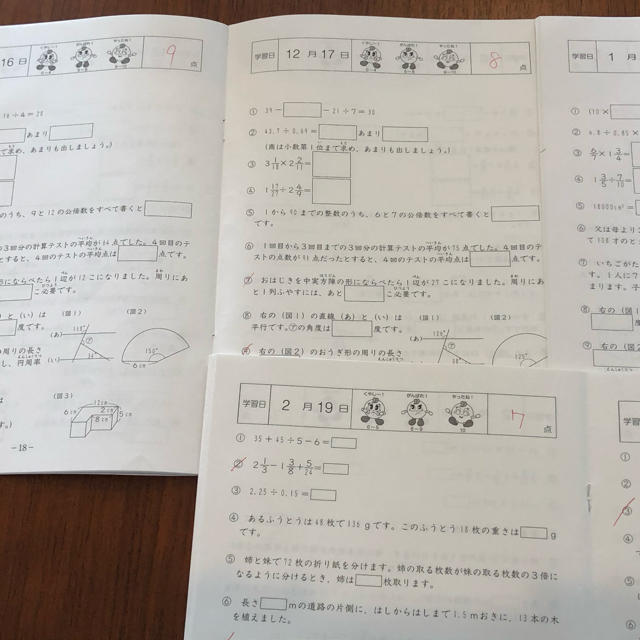 16日
9
点
÷4=28
あまり
で求め、あまりも出しましょう。)
のうち、9と12の公倍数をすべて書くと
の3回分の計算テストの平均が64点でした。4回目のテ
とすると、4回のテストの平均点は 点です。
形にならべたら1辺が12こになりました。周りにあ
こ必要です。
(あ)と(い)は (図1) (図2)
度です。
(あ)
(い)
㋐
150°
の周りの長さ
し、円周率
(図3)
12cm
6cm
2cm
8cm
5cm
-18-
学習日 12月17日
くやしい!
がんばれ!
やったね!
8
点
① 39- -21÷7=30
② 43.7÷0.69= あまり
(商は小数第1位まで求め、あまりも出しましょう。)
③ 3 1/18×2 2/11=
④ 1 17/27÷2 4/9=
⑤ 1から90までの整数のうち、6と7の公倍数をすべて書くと
です。
⑥ 1回目から3回目までの3回分の計算テストの平均が75点でした。4回目のテ
ストの点数が91点だったとすると、4回のテストの平均点は 点です。
⑦ おはじきを中実方陣の形にならべたら1辺が27こになりました。周りにあ
と1列ふやすには、あと こ必要です。
⑧ 右の(図1)の直線(あ)と(い)は (図1) (図2)
平行です。㋐の角度は 度です。
(あ)
㋐
120°
⑨ 右の(図2)のおうぎ形の周りの長さ
1月
①
②
③
④
⑤ 18000cm²=
⑥ 父は母より2
⑦ いちごがた
す。1人に7
まります。子
⑧ 右の(図1)
⑨
学習日 2月19日
くやしい!
がんばれ!
やったね!
7
点
① 35+45÷5-6=
② 2 1/3-1 3/8+5/24=
③ 2.25÷0.15=
④ あるふうとうは48枚で136gです。このふうとう18枚の重さは g
です。
⑤ 姉と妹で72枚の折り紙を分けます。姉の取る枚数が妹の取る枚数の3倍に
なるように分けるとき、姉は 枚取ります。
⑥ 長さ mの道路の片側に、はしからはしまで1.5mおきに、13本の木
を植えました。
①
②
③
④
⑤
⑥